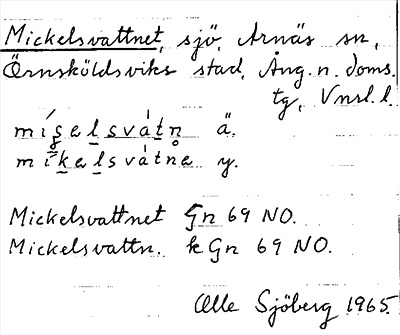 Mickelsvattnet, sjö, Arnäs sn,
Örnsköldsviks stad, Ång. n. doms.
tg, Vnsl. l.
mígelsvàtn̥ ä.
míkelsvàtne y.
Mickelsvattnet Gn 69 NO.
Mickelsvattn. k Gn 69 NO.
Olle Sjöberg 1965.